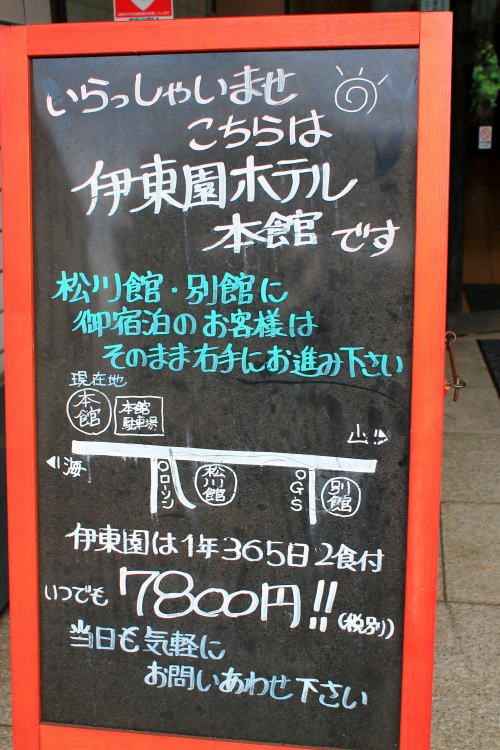 いらっしゃいませ
こちらは
伊東園ホテル
本館です
松川館・別館に
御宿泊のお客様は
そのまま右手にお進み下さい
現在地
本館
本館
駐車場
山
海
ローソン
松川館
GS
別館
伊東園は1年365日2食付
いつでも7800円!!(税別)
当日も気軽に
お問いあわせ下さい